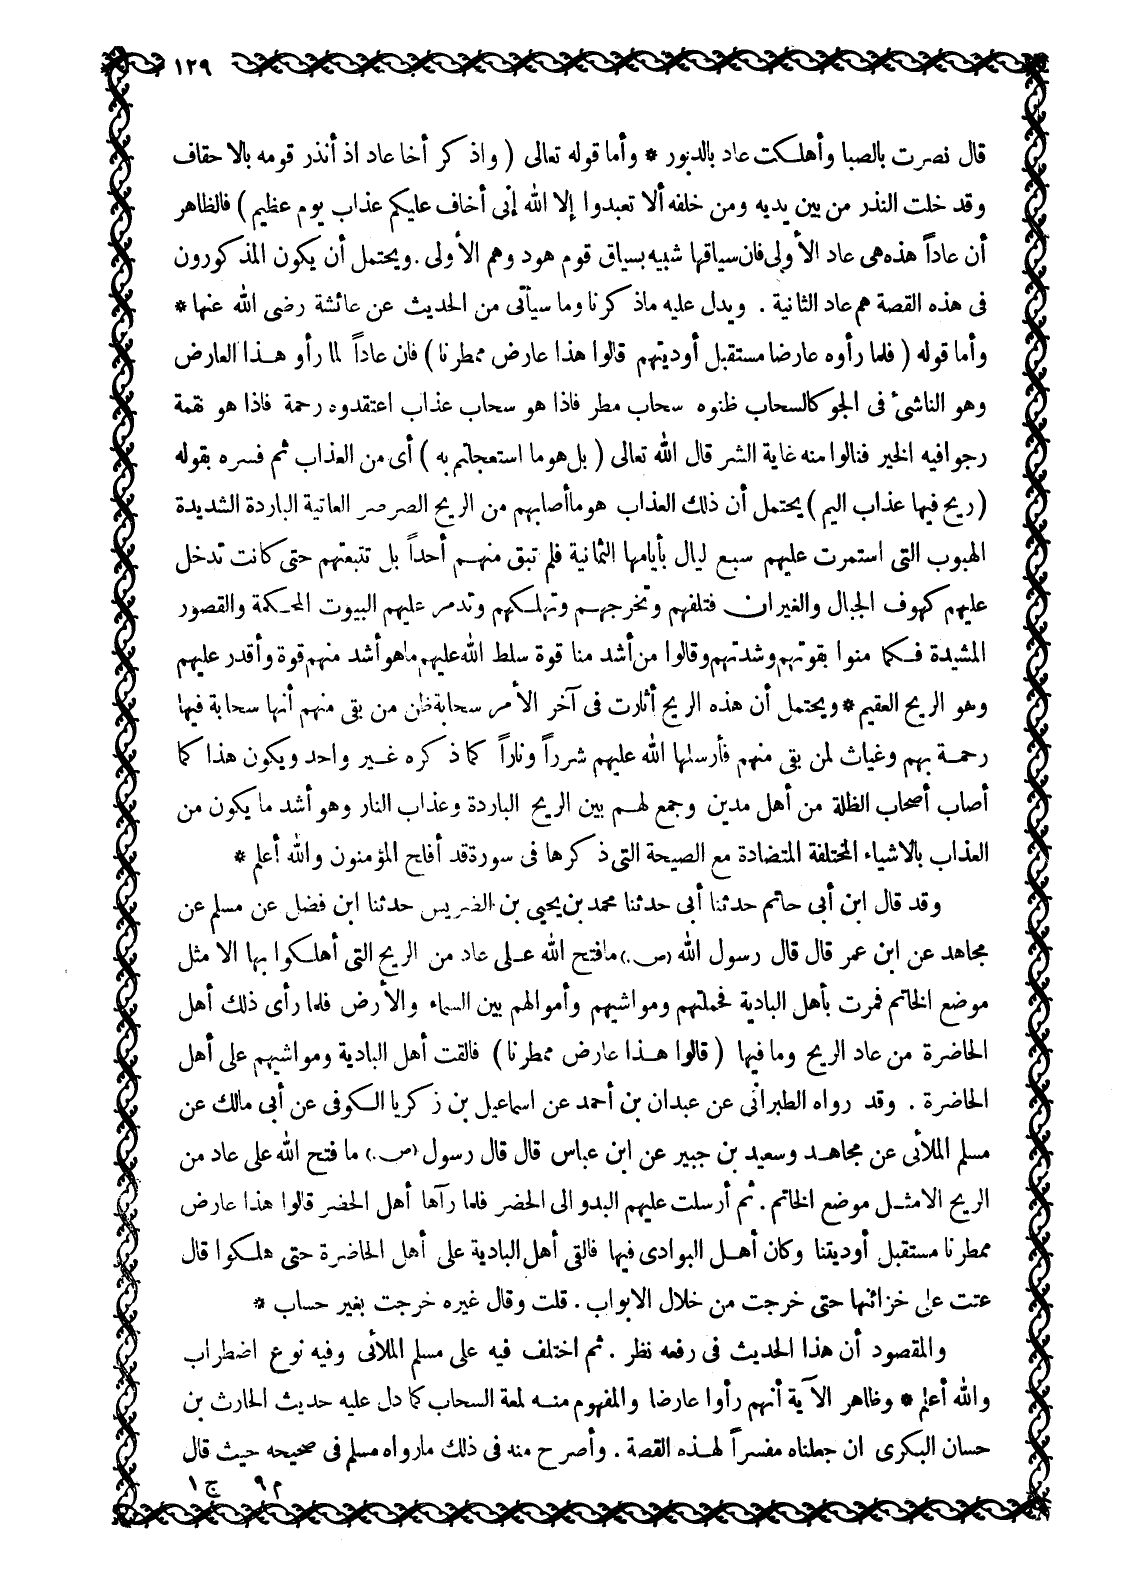 ١٢٩
قال نصرت بالصبا وأهلكت عاد بالدبور * وأما قوله تعالى ( واذكر أخا عاد اذ أنذر قومه بالاحقاف
وقد خلت النذر من بين يديه ومن خلفه ألا تعبدوا إلا الله إنى أخاف عليكم عذاب يوم عظيم ) فالظاهر
أن عاداً هذه هى عاد الأولى فان سياقها شبيه بسياق قوم هود وهم الأولى . ويحتمل أن يكون المذكورون
فى هذه القصة هم عاد الثانية . ويدل عليه ماذكرنا وما سيأتى من الحديث عن عائشة رضى الله عنها *
وأما قوله ( فلما رأوه عارضا مستقبل أوديتهم قالوا هذا عارض ممطرنا ) فان عاداً لما رأو هذا العارض
وهو الناشئ فى الجو كالسحاب ظنوه سحاب مطر فاذا هو سحاب عذاب اعتقدوه رحمة فاذا هو نقمة
رجوا فيه الخير فنالوا منه غاية الشر قال الله تعالى ( بل هو ما استعجلتم به ) أى من العذاب ثم فسره بقوله
( ريح فيها عذاب اليم ) يحتمل أن ذلك العذاب هو ما أصابهم من الريح الصرصر العاتية الباردة الشديدة
الهبوب التى استمرت عليهم سبع ليال بأيامها الثمانية فلم تبق منهم أحداً بل تتبعتهم حتى كانت تدخل
عليهم كهوف الجبال والغيران فتلفهم وتخرجهم وتهلكهم وتدمر عليهم البيوت المحكمة والقصور
المشيدة فكما منوا بقوتهم وشدتهم وقالوا من أشد منا قوة سلط الله عليهم ماهو أشد منهم قوة وأقدر عليهم
وهو الريح العقيم * ويحتمل أن هذه الريح أثارت فى آخر الأمر سحابة ظن من بقى منهم أنها سحابة فيها
رحمة بهم وغياث لمن بقى منهم فأرسلها الله عليهم شرراً وناراً كما ذكره غير واحد ويكون هذا كما
أصاب أصحاب الظلة من أهل مدين وجمع لهم بين الريح الباردة وعذاب النار وهو أشد ما يكون من
العذاب بالاشياء المختلفة المتضادة مع الصيحة التى ذكرها فى سورة قد أفلح المؤمنون والله أعلم *
وقد قال ابن أبى حاتم حدثنا أبى حدثنا محمد بن يحيى بن الضريس حدثنا ابن فضل عن مسلم عن
مجاهد عن ابن عمر قال قال رسول الله (ص.) مافتح الله على عاد من الريح التى أهلكوا بها الا مثل
موضع الخاتم فمرت بأهل البادية فحملتهم ومواشيهم وأموالهم بين السماء والأرض فلما رأى ذلك أهل
الحاضرة من عاد الريح وما فيها ( قالوا هذا عارض ممطرنا ) فالقت أهل البادية ومواشيهم على أهل
الحاضرة . وقد رواه الطبرانى عن عبدان بن أحمد عن اسماعيل بن زكريا الكوفى عن أبى مالك عن
مسلم الملائى عن مجاهد وسعيد بن جبير عن ابن عباس قال قال رسول (ص.) ما فتح الله على عاد من
الريح الامثل موضع الخاتم . ثم أرسلت عليهم البدو الى الحضر فلما رآها أهل الحضر قالوا هذا عارض
ممطرنا مستقبل أوديتنا وكان أهل البوادى فيها فالقى أهل البادية على أهل الحاضرة حتى هلكوا قال
عتت على خزائنها حتى خرجت من خلال الابواب . قلت وقال غيره خرجت بغير حساب *
والمقصود أن هذا الحديث فى رفعه نظر . ثم اختلف فيه على مسلم الملائى وفيه نوع اضطراب
والله أعلم * وظاهر الآية أنهم رأوا عارضا والمفهوم منه لمعة السحاب كما دل عليه حديث الحارث بن
حسان البكرى ان جعلناه مفسراً لهذه القصة . وأصرح منه فى ذلك مارواه مسلم فى صحيحه حيث قال
م ٩ ج ١